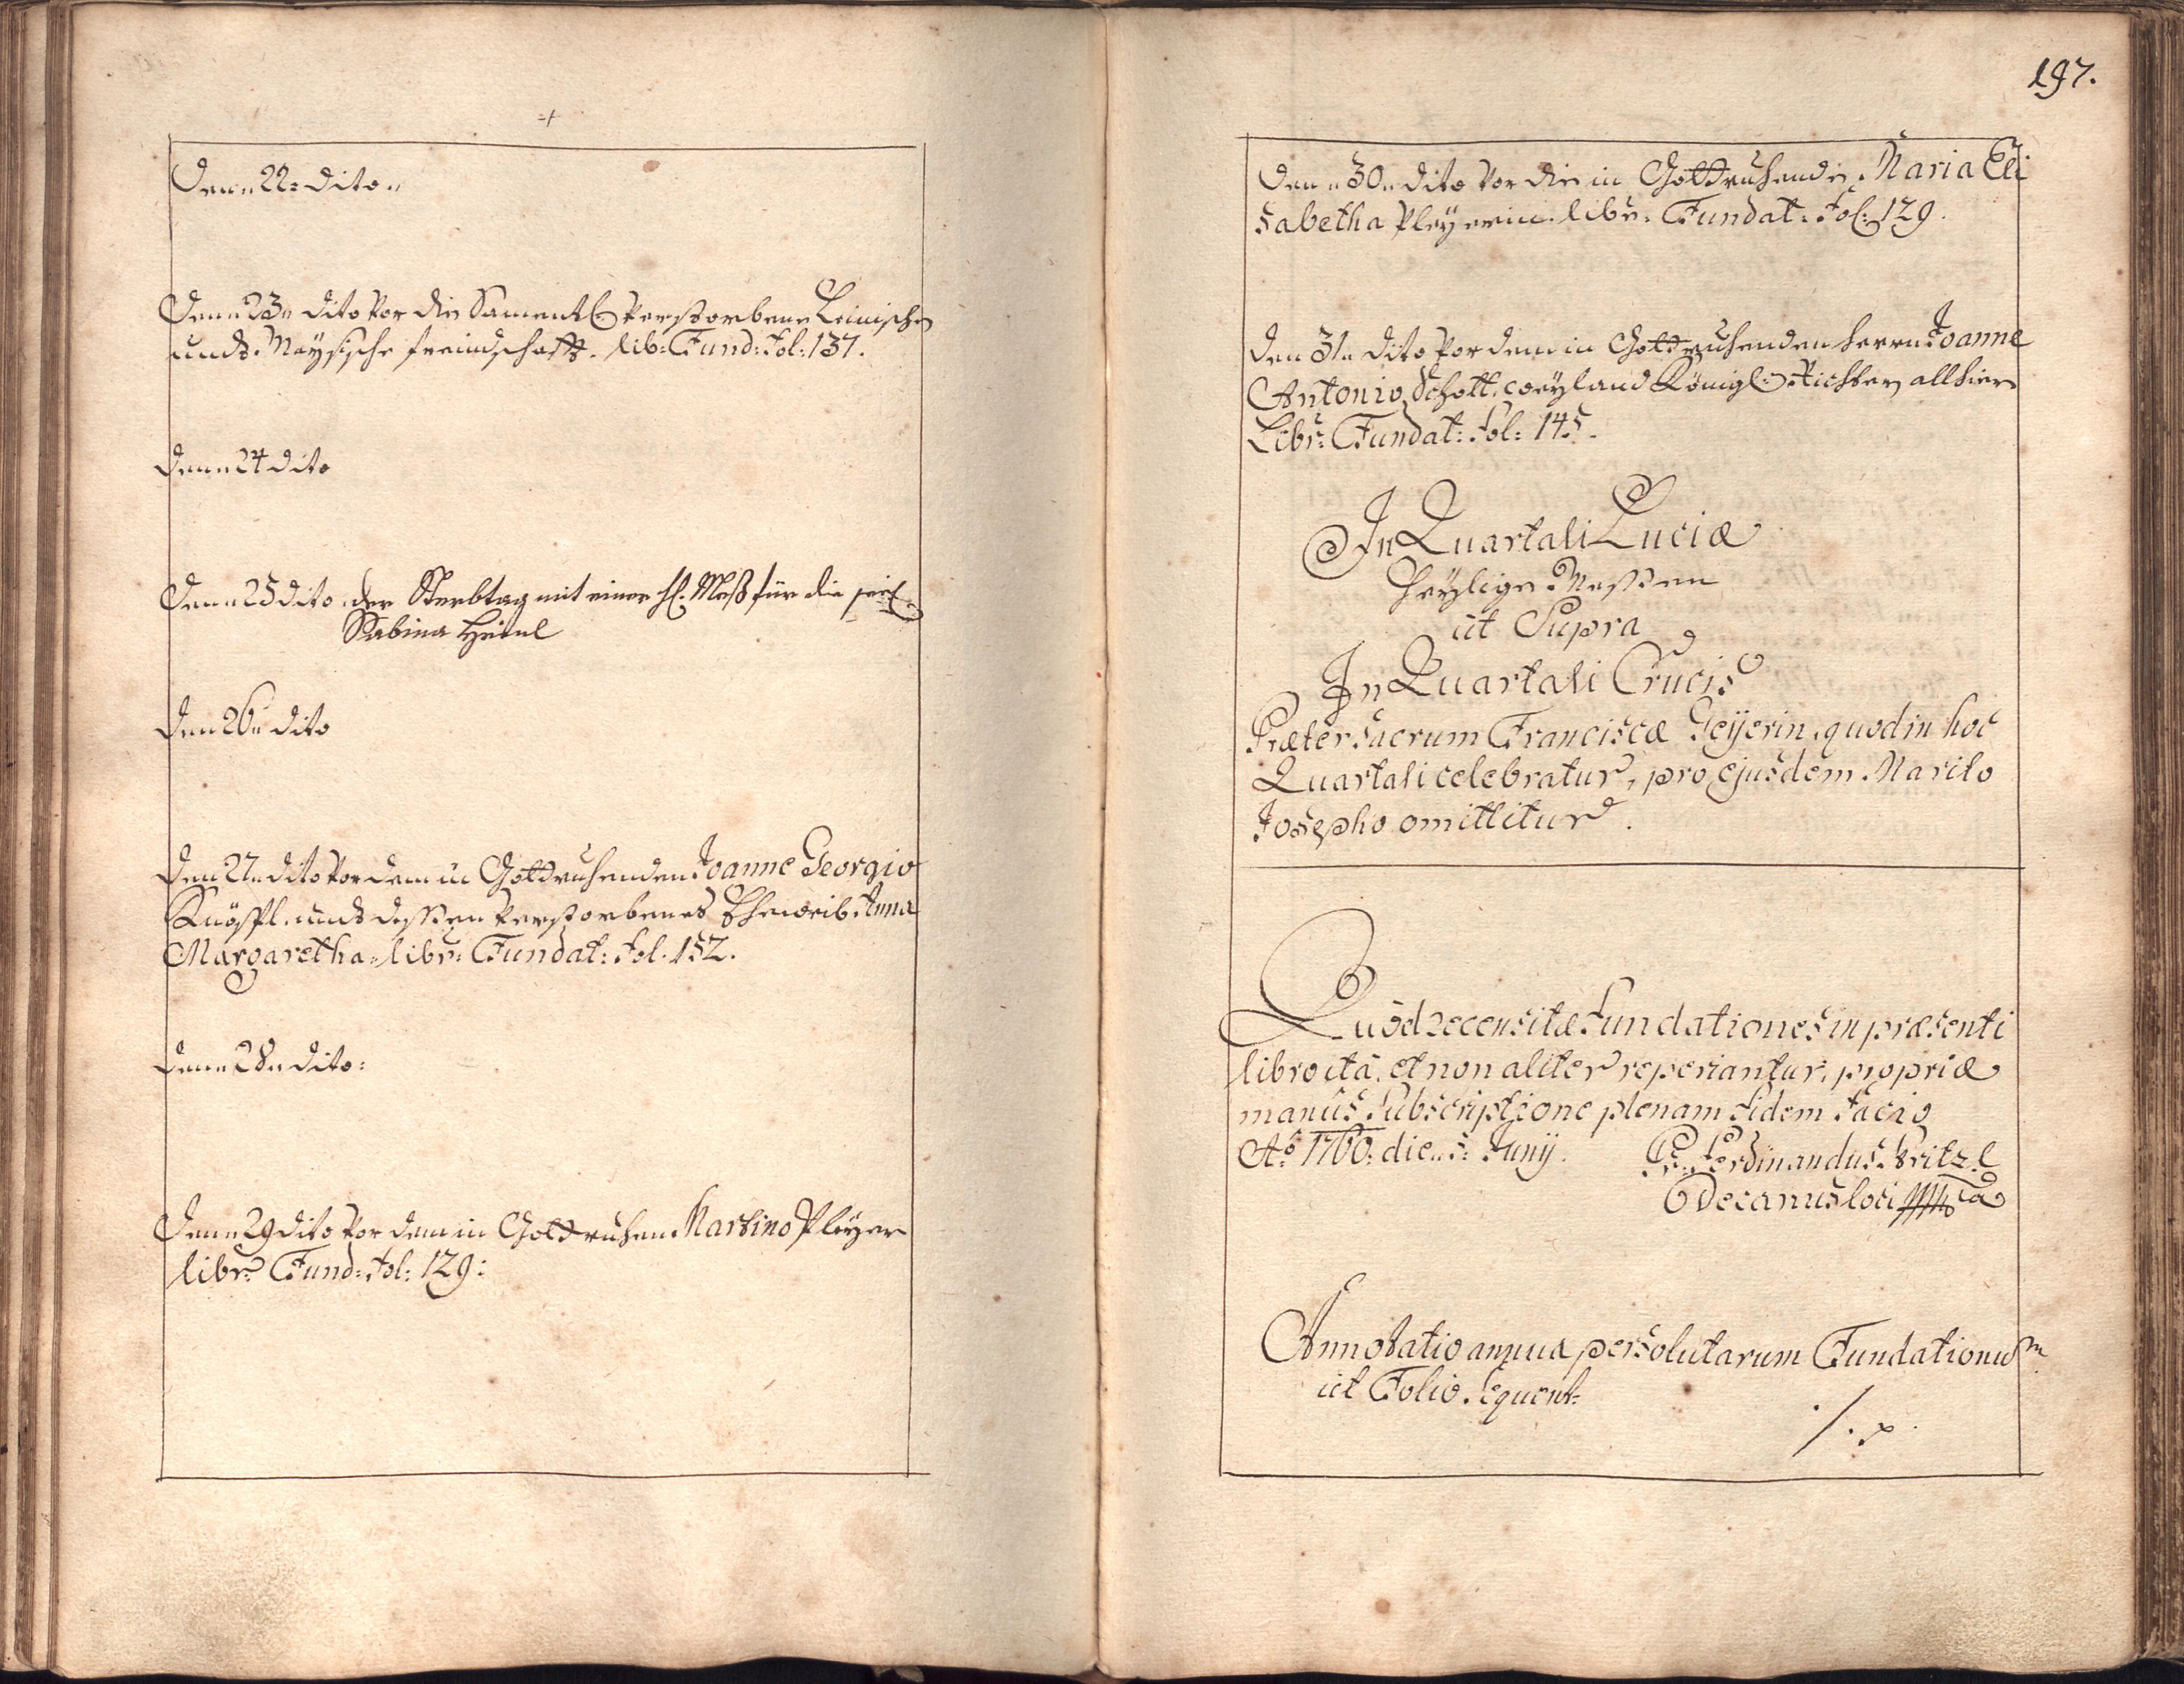 Den „ 22 = dito „
Den „ 23 „ dito Vor die Samentl: verstorbene Leinische
und Maysische freindschafft. lib: Fund: Fol: 137.
Den „ 24 dito
Den „ 25 dito der Sterbtag mit einer hl. Meß für die seel.
Sabina Heinl
Den 26 „ dito
Den 27 „ dito Vor dem in Gott ruhenden Joanne Georgio
Knöspl. und dessen verstorbenes Eheweib Anna
Margaretha „ libr: Fundat: Fol. 152.
Den „ 28 „ dito:
Den „ 29 dito Vor dem in Gott ruhen. Martino Pleyer
libr: Fund: Fol: 129:
197.
Den „ 30 „ dito Vor die in Gott ruhende Maria Eli
sabetha Pleyerin libr: Fundat: Fol: 129.
Den 31 „ dito Vor dem in Gott ruhenden herrn Joanne
Antonio Schott. weyland Königl: Richter allhier
Libr: Fundat: Fol: 145.
In Quartali Luciæ
heylige Messen
ut Supra
In Quartali Crucis
Præter sacrum Franciscæ Geyerin, quod in hoc
Quartali celebratur, pro ejusdem Marito
Josepho omittitur.
Quod recensitæ Fundationes in præsenti
libro ita, et non aliter reperiantur, propriæ
manus Subscriptione plenam fidem facio
Aõ 1760: die „ 5: Junij. Fr: Ferdinandus Fritzl
Decanus loci
Annotatio annua persolutarum Fundationum
ut Folio. sequent: